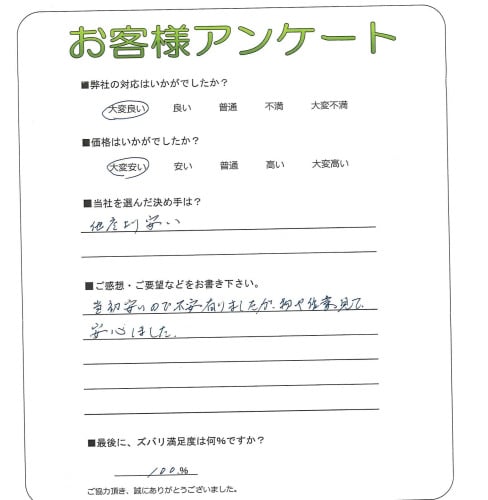 お客様アンケート
■弊社の対応はいかがでしたか？
大変良い 良い 普通 不満 大変不満
■価格はいかがでしたか？
大変安い 安い 普通 高い 大変高い
■当社を選んだ決め手は？
他店より安い
■ご感想・ご要望などをお書き下さい。
当初安いので不安有りましたが、物や作業見て、
安心しました。
■最後に、ズバリ満足度は何％ですか？
100%
ご協力頂き、誠にありがとうございました。